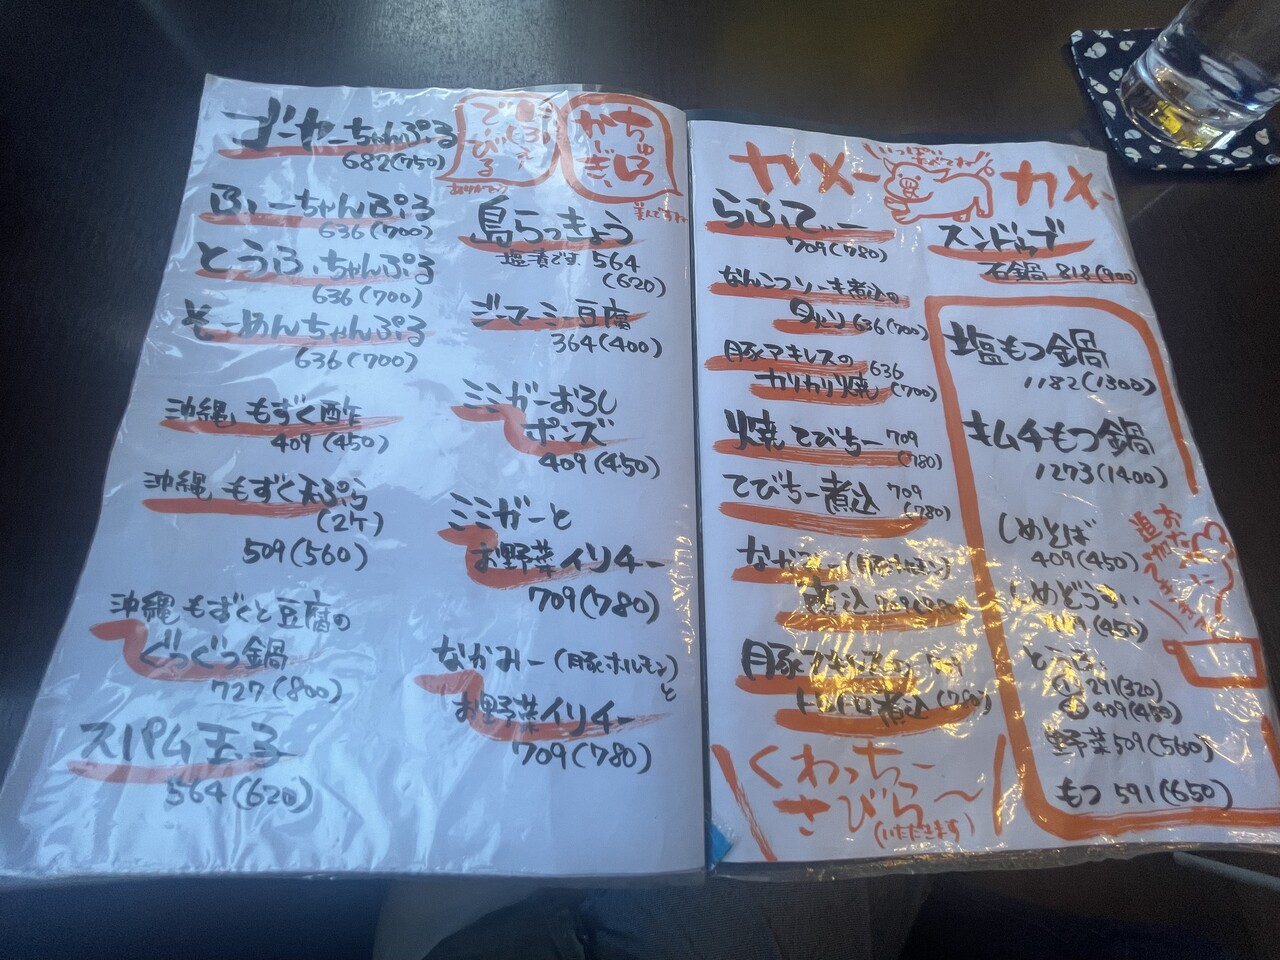 ゴーヤーちゃんぷる
682(750)
ふーちゃんぷる
636(700)
とうふちゃんぷる
636(700)
そーめんちゃんぷる
636(700)
沖縄もずく酢
409(450)
沖縄もずく天ぷら
(2ケ)
509(560)
沖縄もずくと豆腐の
ぐつぐつ鍋
727(800)
スパム玉子
564(620)
でーびる
ちゅら
かーぎ
美人ですね
島らっきょう
塩漬です 564
(620)
ジーマーミー豆腐
364(400)
ミミガーおろし
ポンズ
409(450)
ミミガーと
お野菜イリチー
709(780)
なかみー(豚ホルモン)
と
お野菜イリチー
709(780)
カメー
カメー
らふてぃー
709(780)
なんこつソーキ煮込の
636(700)
豚アキレスの
カリカリ焼
636
(700)
焼てびちー 709
(780)
てびちー煮込 709
(780)
なかみー(豚ホルモン)
煮込
豚アキレスの
煮込
くわっちー
さびら〜
(いただきます)
スンドゥブ
石鍋 818(900)
塩もつ鍋
1182(1300)
キムチもつ鍋
1273(1400)
しめそば
409(450)
しめどうふい
(450)
とうふ
291(320)
409(450)
野菜 509(560)
もつ 591(650)
追加